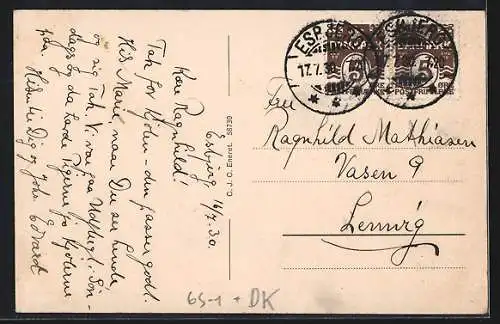 Esbjerg, 16/7. 30.
Kære Ragnhild!
Tak for Kjolen – den passer godt.
Hils Marie, naar Du ser hende
og sig Tak. Vi var paa Udflugt i Søn-
dags og da havde Pigerne jo Kjolerne
paa. Hilsen til Dig og Johs. Edvard
C. J. C. Eneret. 58730
ESBJERG
17.7.30
5 5
POSTFRIM ØRE
Fru
Ragnhild Mathiasen
Vasen 9
Lemvig
65-1 + DK